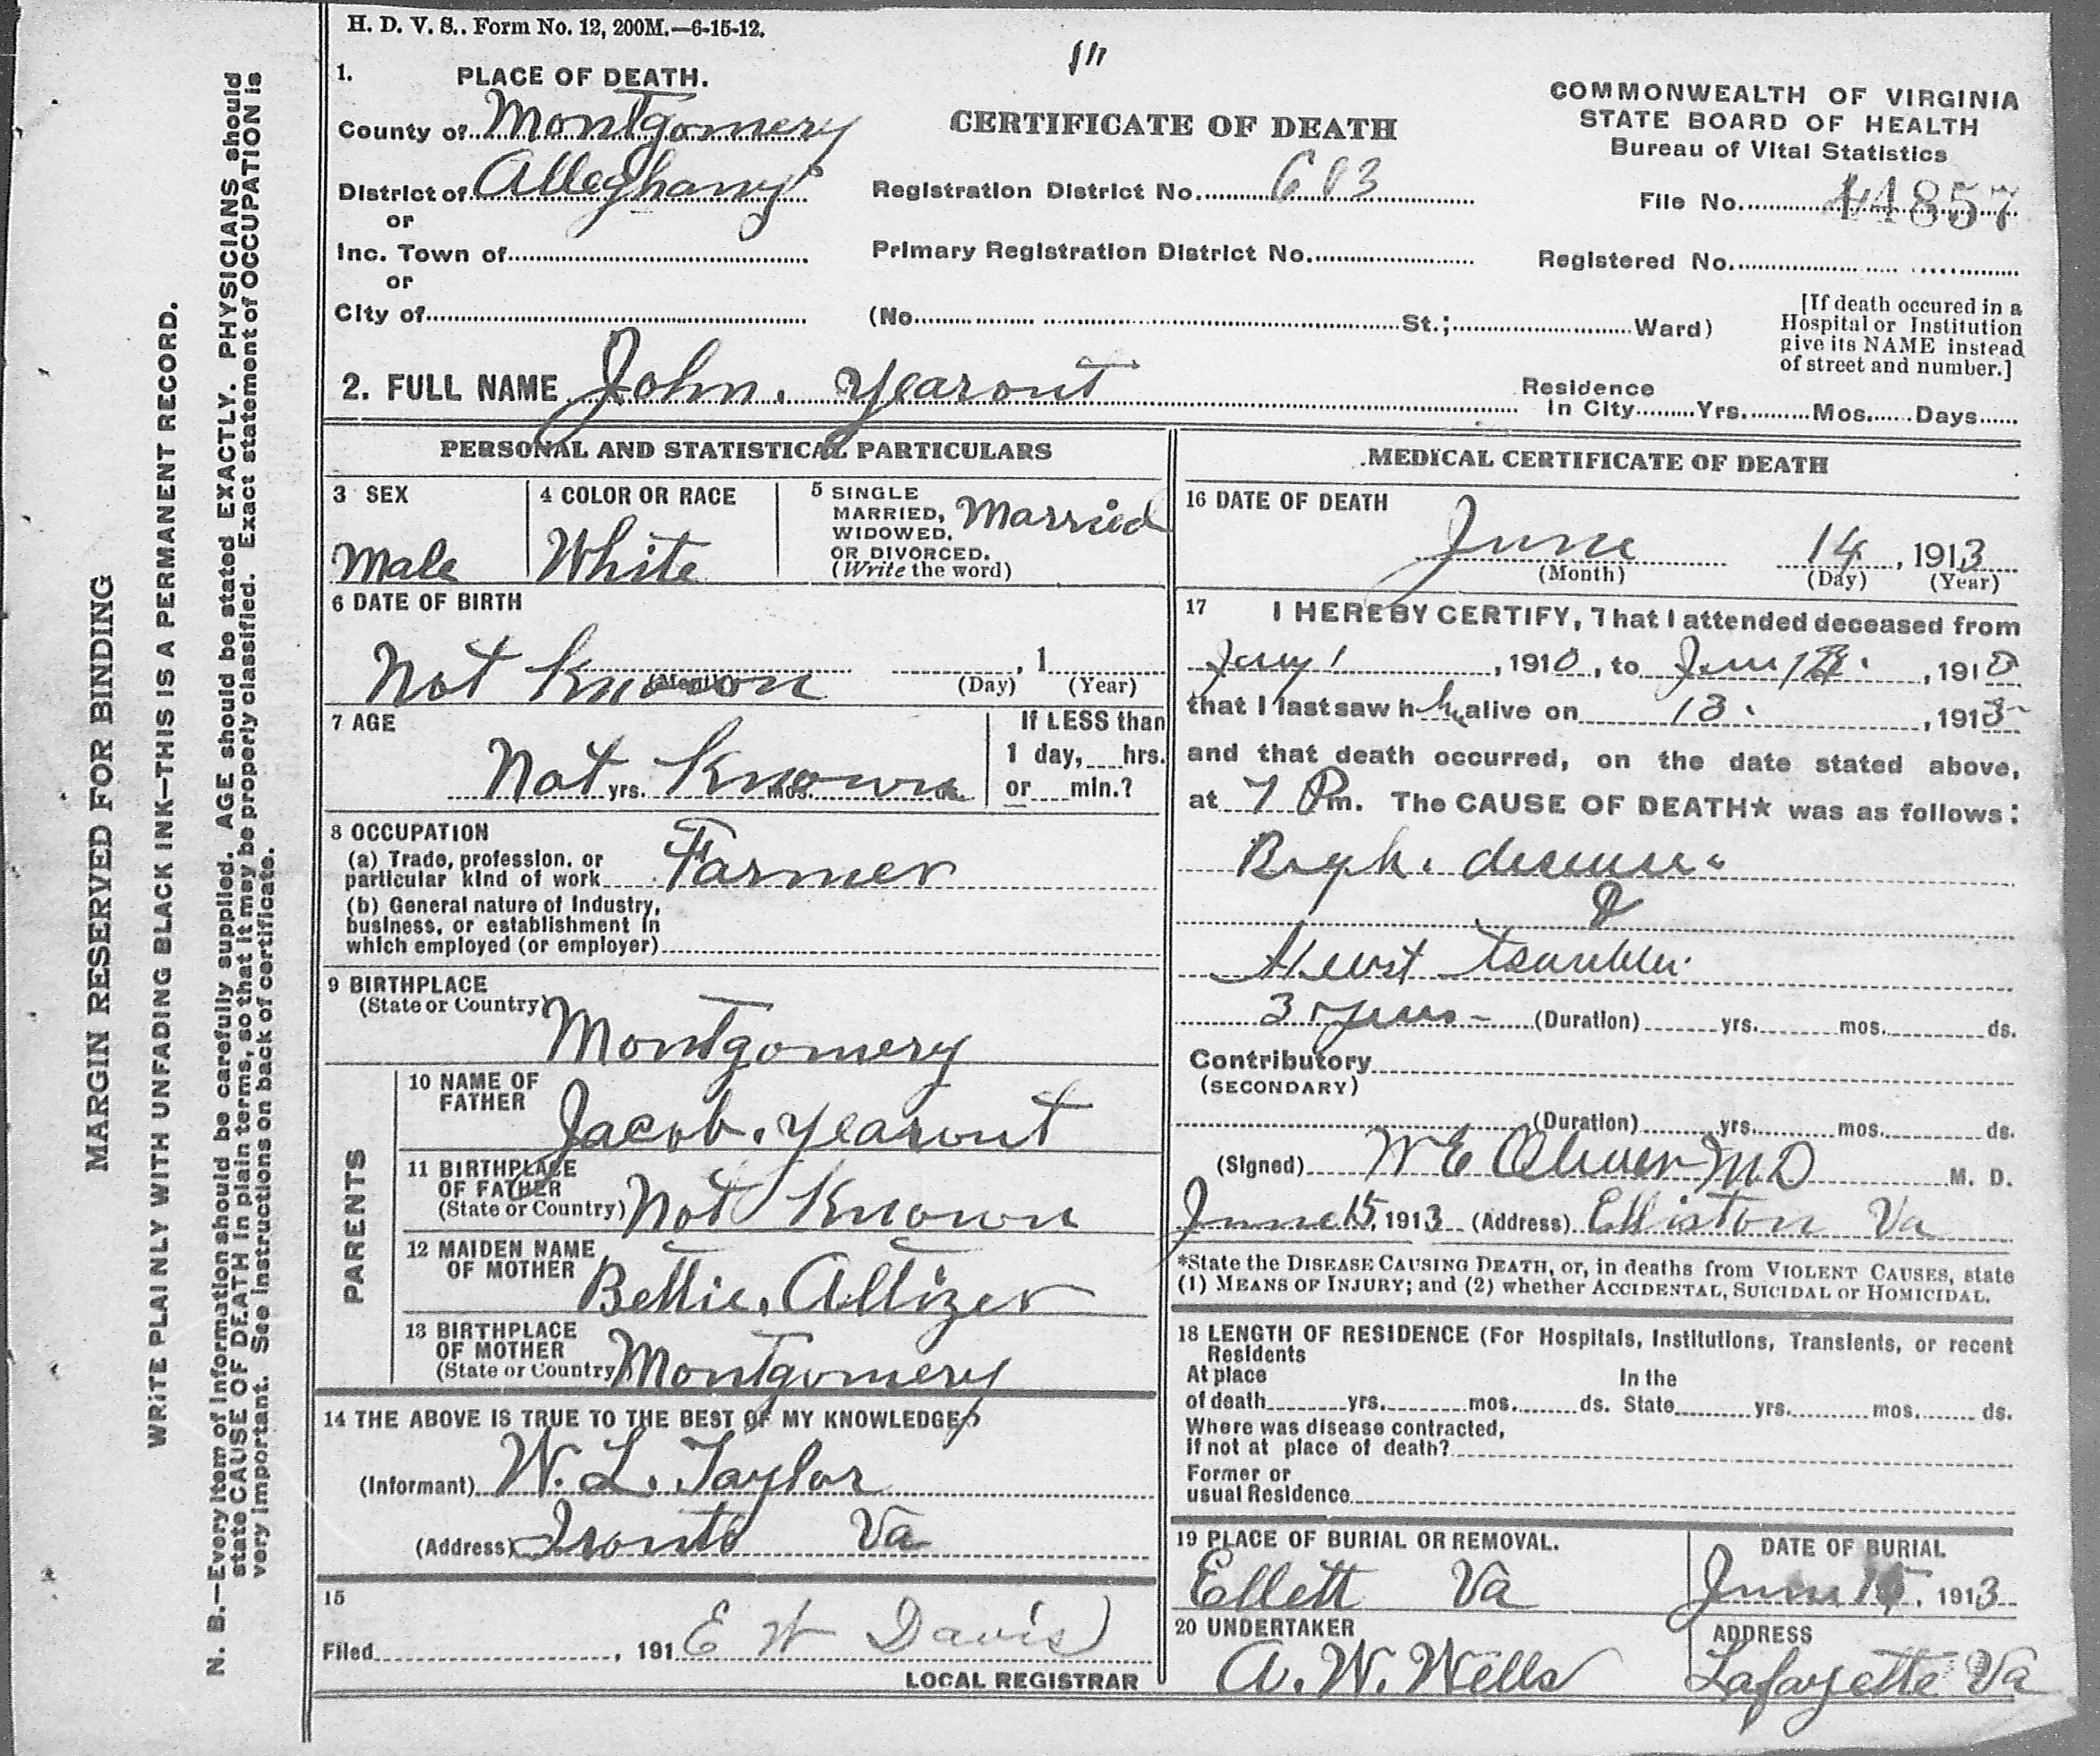 H. D. V. S.. Form No. 12, 200M.—6-15-12.
1. PLACE OF DEATH.
County of Montgomery
District of Alleghany
or
Inc. Town of
or
City of
CERTIFICATE OF DEATH
Registration District No. 603
Primary Registration District No.
(No. St.; Ward)
COMMONWEALTH OF VIRGINIA
STATE BOARD OF HEALTH
Bureau of Vital Statistics
File No. 14857
Registered No.
[If death occured in a
Hospital or Institution
give its NAME instead
of street and number.]
2. FULL NAME John. Yearout
Residence
In City Yrs. Mos. Days
PERSONAL AND STATISTICAL PARTICULARS
3 SEX
Male
4 COLOR OR RACE
White
5 SINGLE
MARRIED,
WIDOWED.
OR DIVORCED.
(Write the word)
Married
6 DATE OF BIRTH
Not Known
(Month) (Day) , 1 (Year)
7 AGE
Not yrs. Known mos.
If LESS than
1 day, hrs.
or min.?
8 OCCUPATION
(a) Trade, profession. or
particular kind of work Farmer
(b) General nature of Industry,
business, or establishment in
which employed (or employer)
9 BIRTHPLACE
(State or Country)
Montgomery
PARENTS
10 NAME OF
FATHER
Jacob. Yearout
11 BIRTHPLACE
OF FATHER
(State or Country) Not Known
12 MAIDEN NAME
OF MOTHER Bettie. Altizer
13 BIRTHPLACE
OF MOTHER
(State or Country) Montgomery
14 THE ABOVE IS TRUE TO THE BEST OF MY KNOWLEDGE
(Informant) W. L. Taylor
(Address) Ironto Va
15
Filed , 191 E W Davis
LOCAL REGISTRAR
MEDICAL CERTIFICATE OF DEATH
16 DATE OF DEATH
June 14, 1913
(Month) (Day) (Year)
17 I HEREBY CERTIFY, That I attended deceased from
1, 1910, to June , 191
that I last saw h alive on 13. , 1913
and that death occurred, on the date stated above,
at 7 Pm. The CAUSE OF DEATH★ was as follows:
disease
&
Heart trouble
3 years (Duration) yrs. mos. ds.
Contributory
(SECONDARY)
(Duration) yrs. mos. ds.
(Signed) W E Oliver MD M. D.
June 15, 1913 (Address) Elliston Va
*State the DISEASE CAUSING DEATH, or, in deaths from VIOLENT CAUSES, state
(1) MEANS OF INJURY; and (2) whether ACCIDENTAL, SUICIDAL or HOMICIDAL.
18 LENGTH OF RESIDENCE (For Hospitals, Institutions, Transients, or recent
Residents
At place In the
of death yrs. mos. ds. State yrs. mos. ds.
Where was disease contracted,
If not at place of death?
Former or
usual Residence
19 PLACE OF BURIAL OR REMOVAL.
Ellett Va
DATE OF BURIAL
June , 1913
20 UNDERTAKER
A. W. Wells
ADDRESS
Lafayette Va
MARGIN RESERVED FOR BINDING
WRITE PLAINLY WITH UNFADING BLACK INK—THIS IS A PERMANENT RECORD.
N. B.—Every item of information should be carefully supplied. AGE should be stated EXACTLY. PHYSICIANS should
state CAUSE OF DEATH in plain terms, so that it may be properly classified. Exact statement of OCCUPATION is
very important. See instructions on back of certificate.